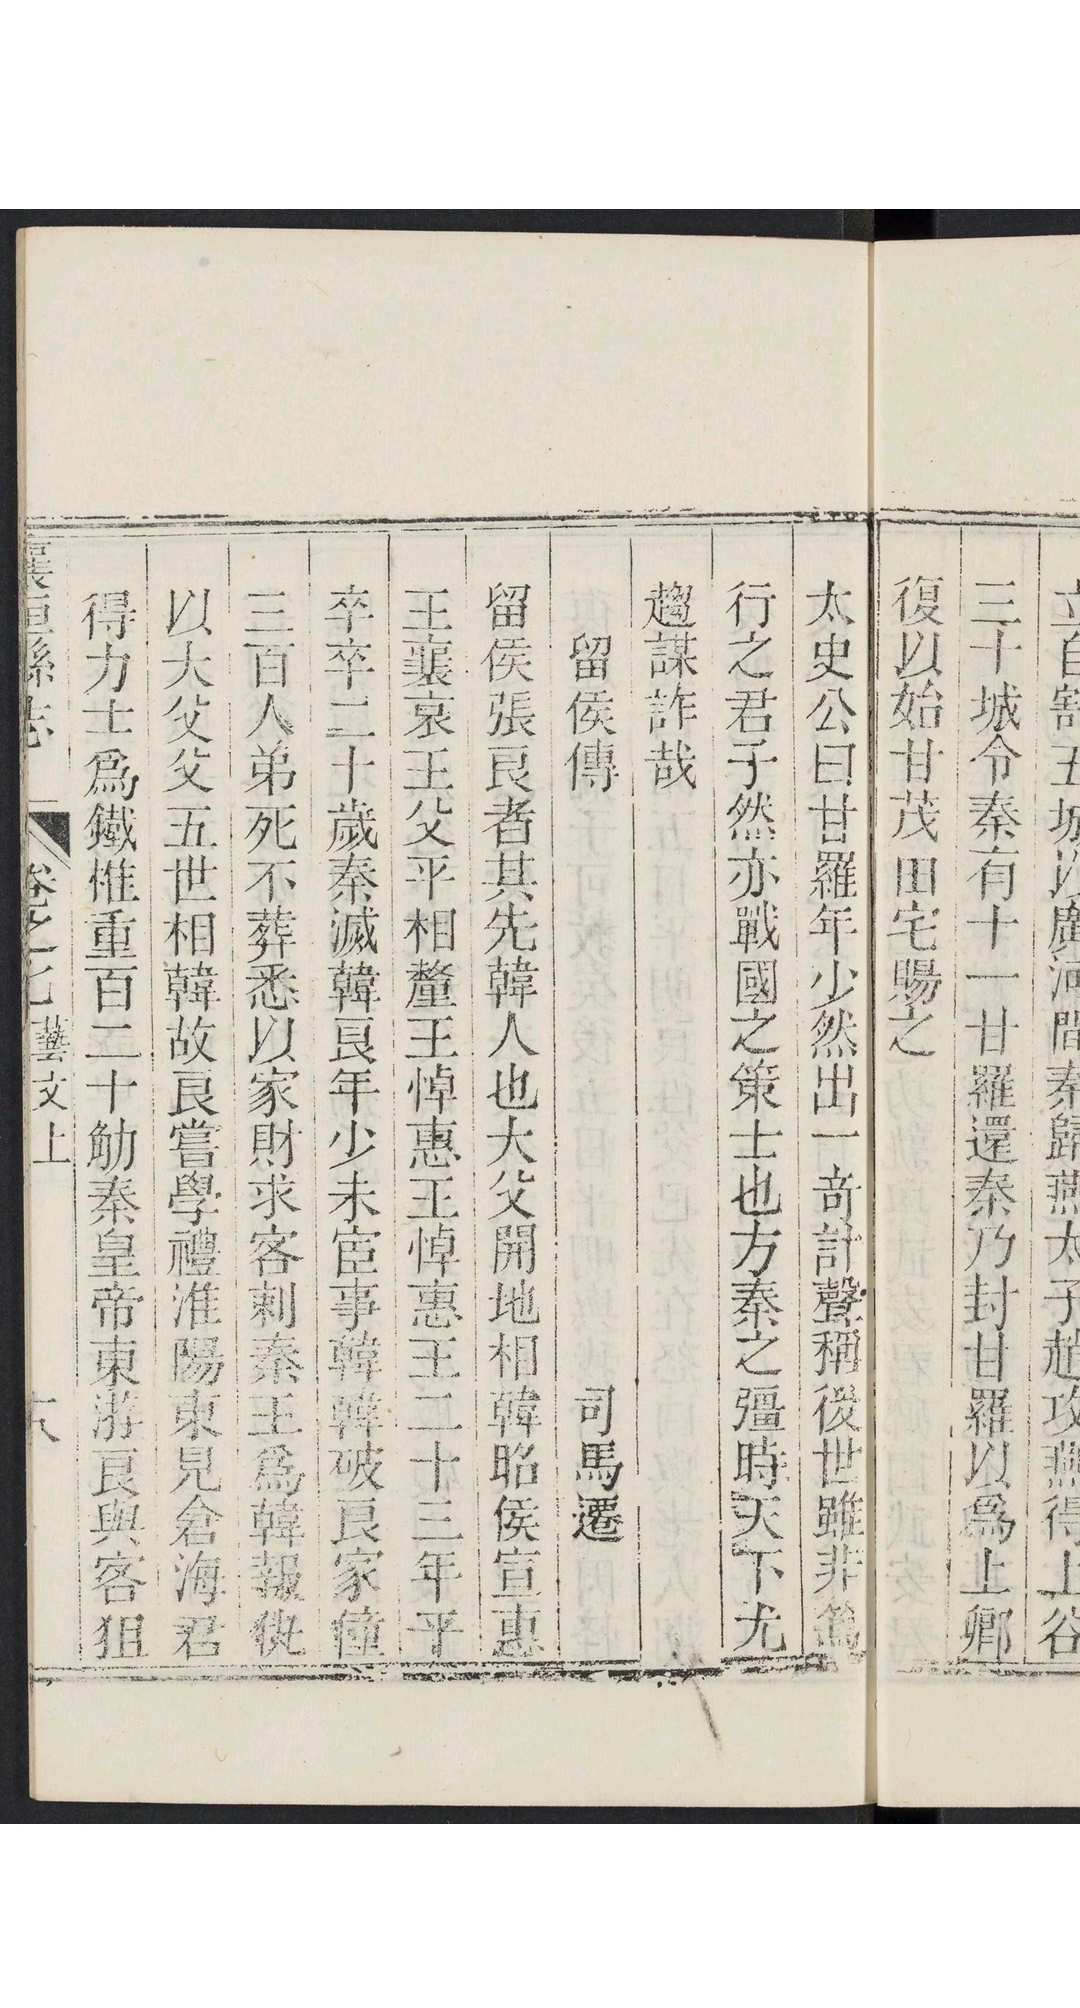 立自割五城以廣河間秦歸燕太子趙攻燕得上谷
三十城令秦有十一甘羅還秦乃封甘羅以爲上卿
復以始甘茂田宅賜之
太史公曰甘羅年少然出一奇計聲稱後世雖非篤
行之君子然亦戰國之策士也方秦之彊時天下尤
趨謀詐哉
留侯傳 司馬遷
留侯張良者其先韓人也大父開地相韓昭侯宣惠
王襄哀王父平相釐王悼惠王悼惠王二十三年平
卒卒二十歲秦滅韓良年少未宦事韓韓破良家僮
三百人弟死不葬悉以家財求客刺秦王爲韓報仇
以大父父五世相韓故良嘗學禮淮陽東見倉海君
得力士爲鐵椎重百二十觔秦皇帝東游良與客狙
縣志 卷之七 藝文上 六